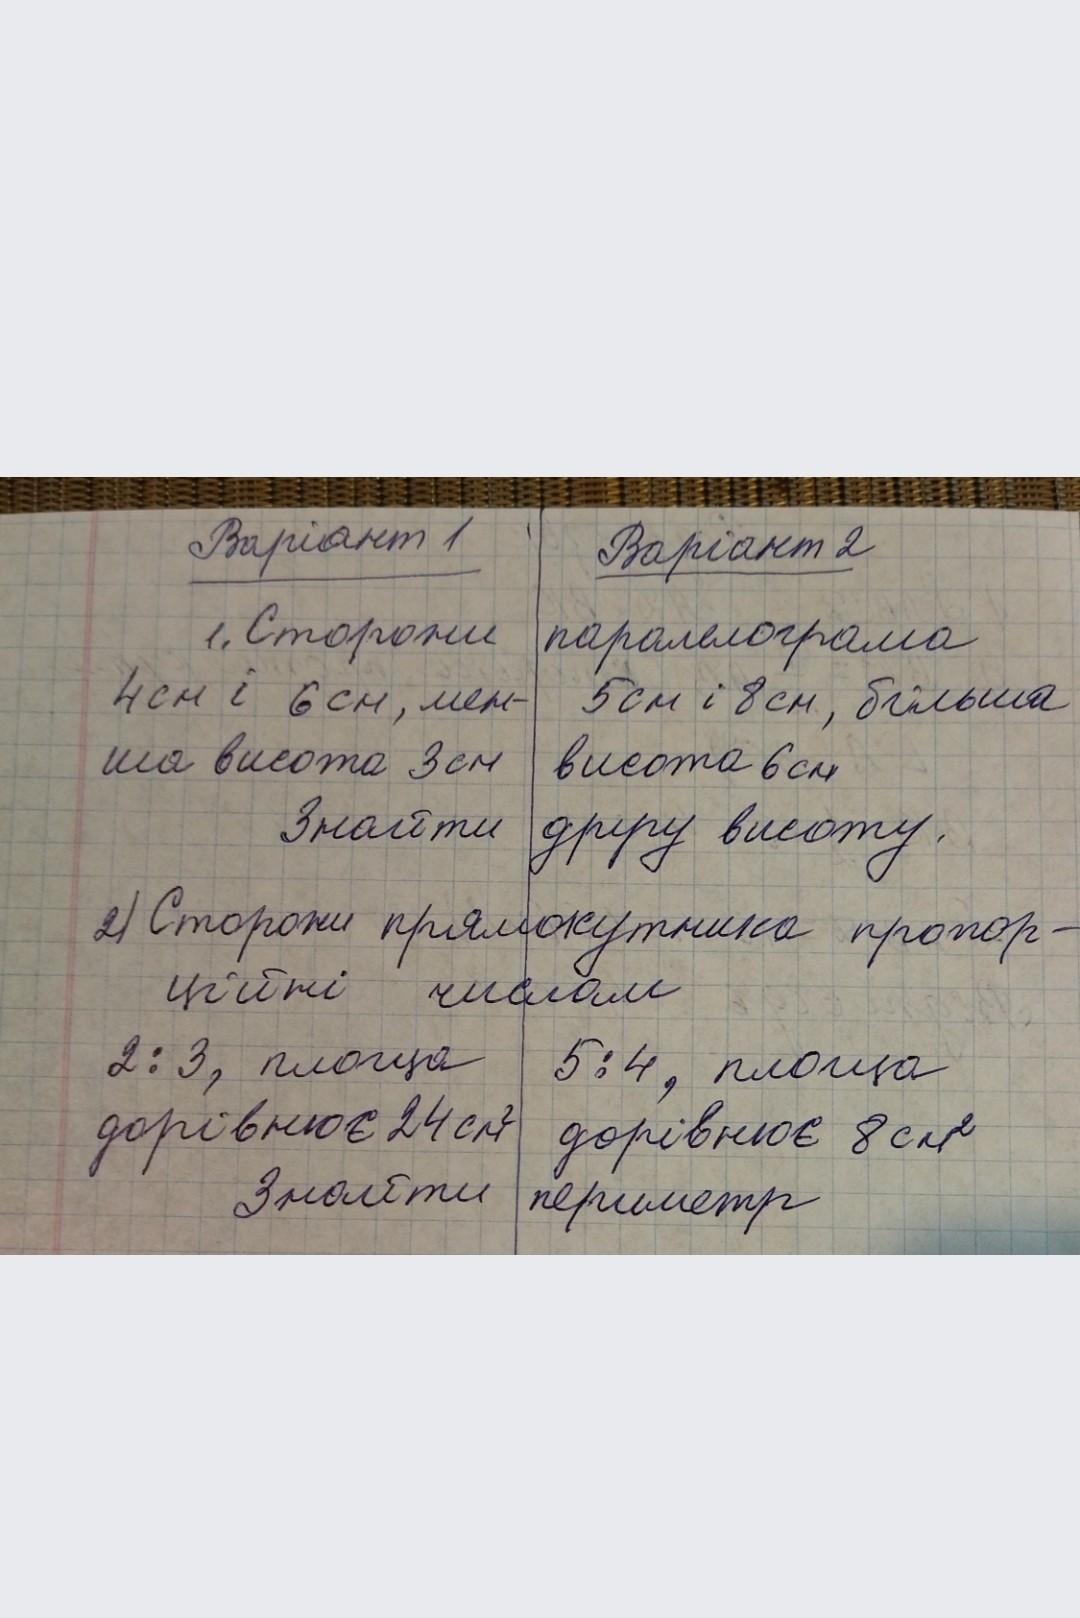 Варіант 1 Варіант 2
1. Сторони паралелограма
4см і 6см, мен- 5см і 8см, більша
ша висота 3см висота 6см
Знайти другу висоту.
2) Сторони прямокутника пропор-
ційні числам
2:3, площа 5:4, площа
дорівнює 24см² дорівнює 8см²
Знайти периметр